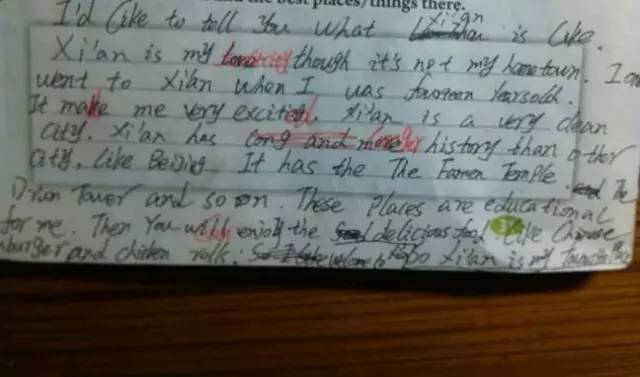 the best places/things there.
I'd like to tell you what Xi'an is like.
Xi'an is my city though it's not my hometown. I
went to Xi'an when I was fourteen years old.
It make me very excited. Xi'an is a very clean
city. Xi'an has long and more longer history than other
city, like Beijing. It has the The Famen Temple. and The
Drun Tower and so on. These places are educational
for me. Then you will enjoy the delicious food like Chinese
burger and chicken rolls. So Xi'an is my